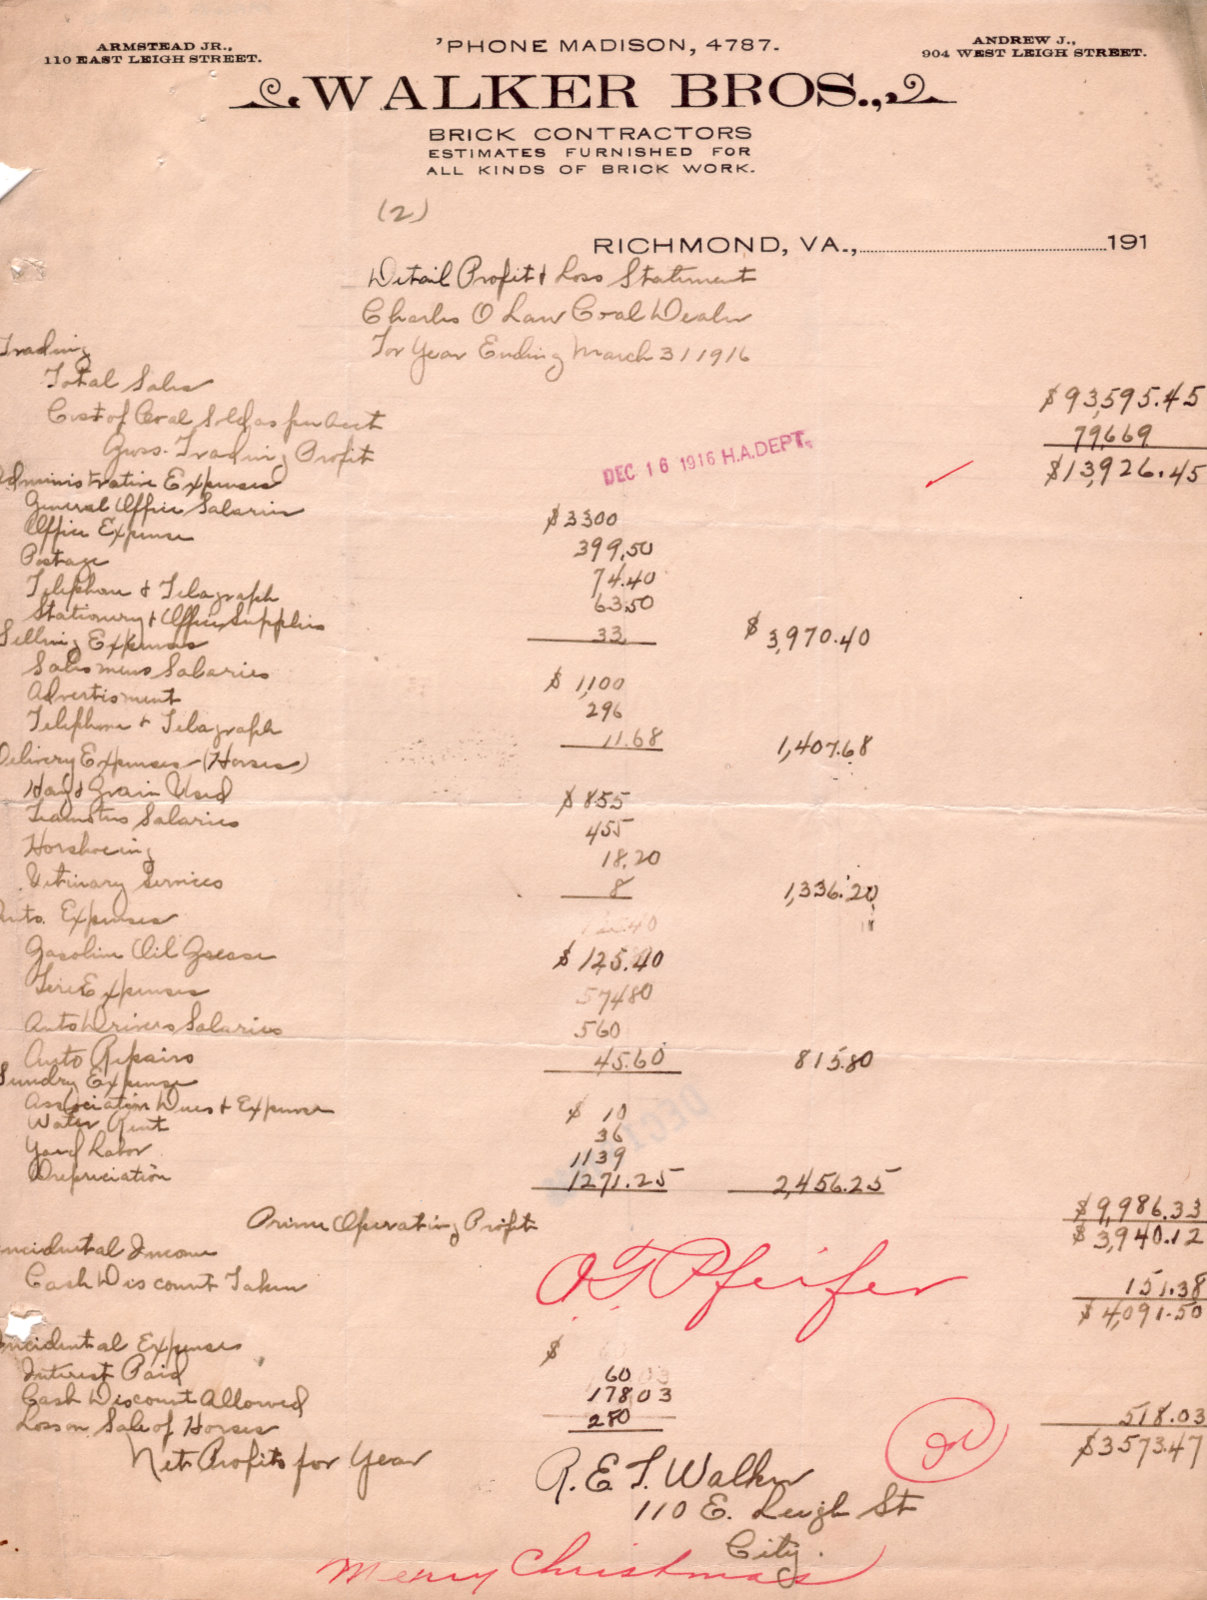 ARMSTEAD JR.,
110 EAST LEIGH STREET.
'PHONE MADISON, 4787.
ANDREW J.,
904 WEST LEIGH STREET.
WALKER BROS.,
BRICK CONTRACTORS
ESTIMATES FURNISHED FOR
ALL KINDS OF BRICK WORK.
(2)
RICHMOND, VA., 191
Detail Profit & Loss Statement
Charles O Law Coal Dealer
For Year Ending March 31 1916
Trading
Total Sales $93,595.45
Cost of Coal Sold as per Acct 79,669
Gross Trading Profit $13,926.45
DEC 16 1916 H.A.DEPT.
Administrative Expenses
General Office Salaries $3300
Office Expense 399.50
Postage 74.40
Telephone & Telagraph 63.50
Stationery & Office Supplies 33 $3,970.40
Selling Expenses
Salesmens Salaries $1,100
Advertisment 296
Telephone & Telagraph 11.68 1,407.68
Delivery Expenses (Horses)
Hay & Grain Used $855
Teamsters Salaries 455
Horshoeing 18.20
Vetinary Services 8 1,336.20
Auto. Expenses
Gasoline Oil Grease $125.40
Tire Expenses 57480
Auto Drivers Salaries 560
Auto Repairs 45.60 815.80
Sundry Expense
Association Dues & Expense $10
Water Rent 36
Yard Labor 1139
Depreciation 1271.25 2,456.25
$9,986.33
Prime Operating Profit $3,940.12
Incidental Income
Cash Discount Taken 151.38
$4,091.50
O T Pfeifer
Incidental Expenses $
Interest Paid 60
Cash Discount Allowed 17803
Loss on Sale of Horses 280 518.03
Net Profits for Year $3573.47
R. E. T. Walker
110 E. Leigh St
City.
Merry Christmas